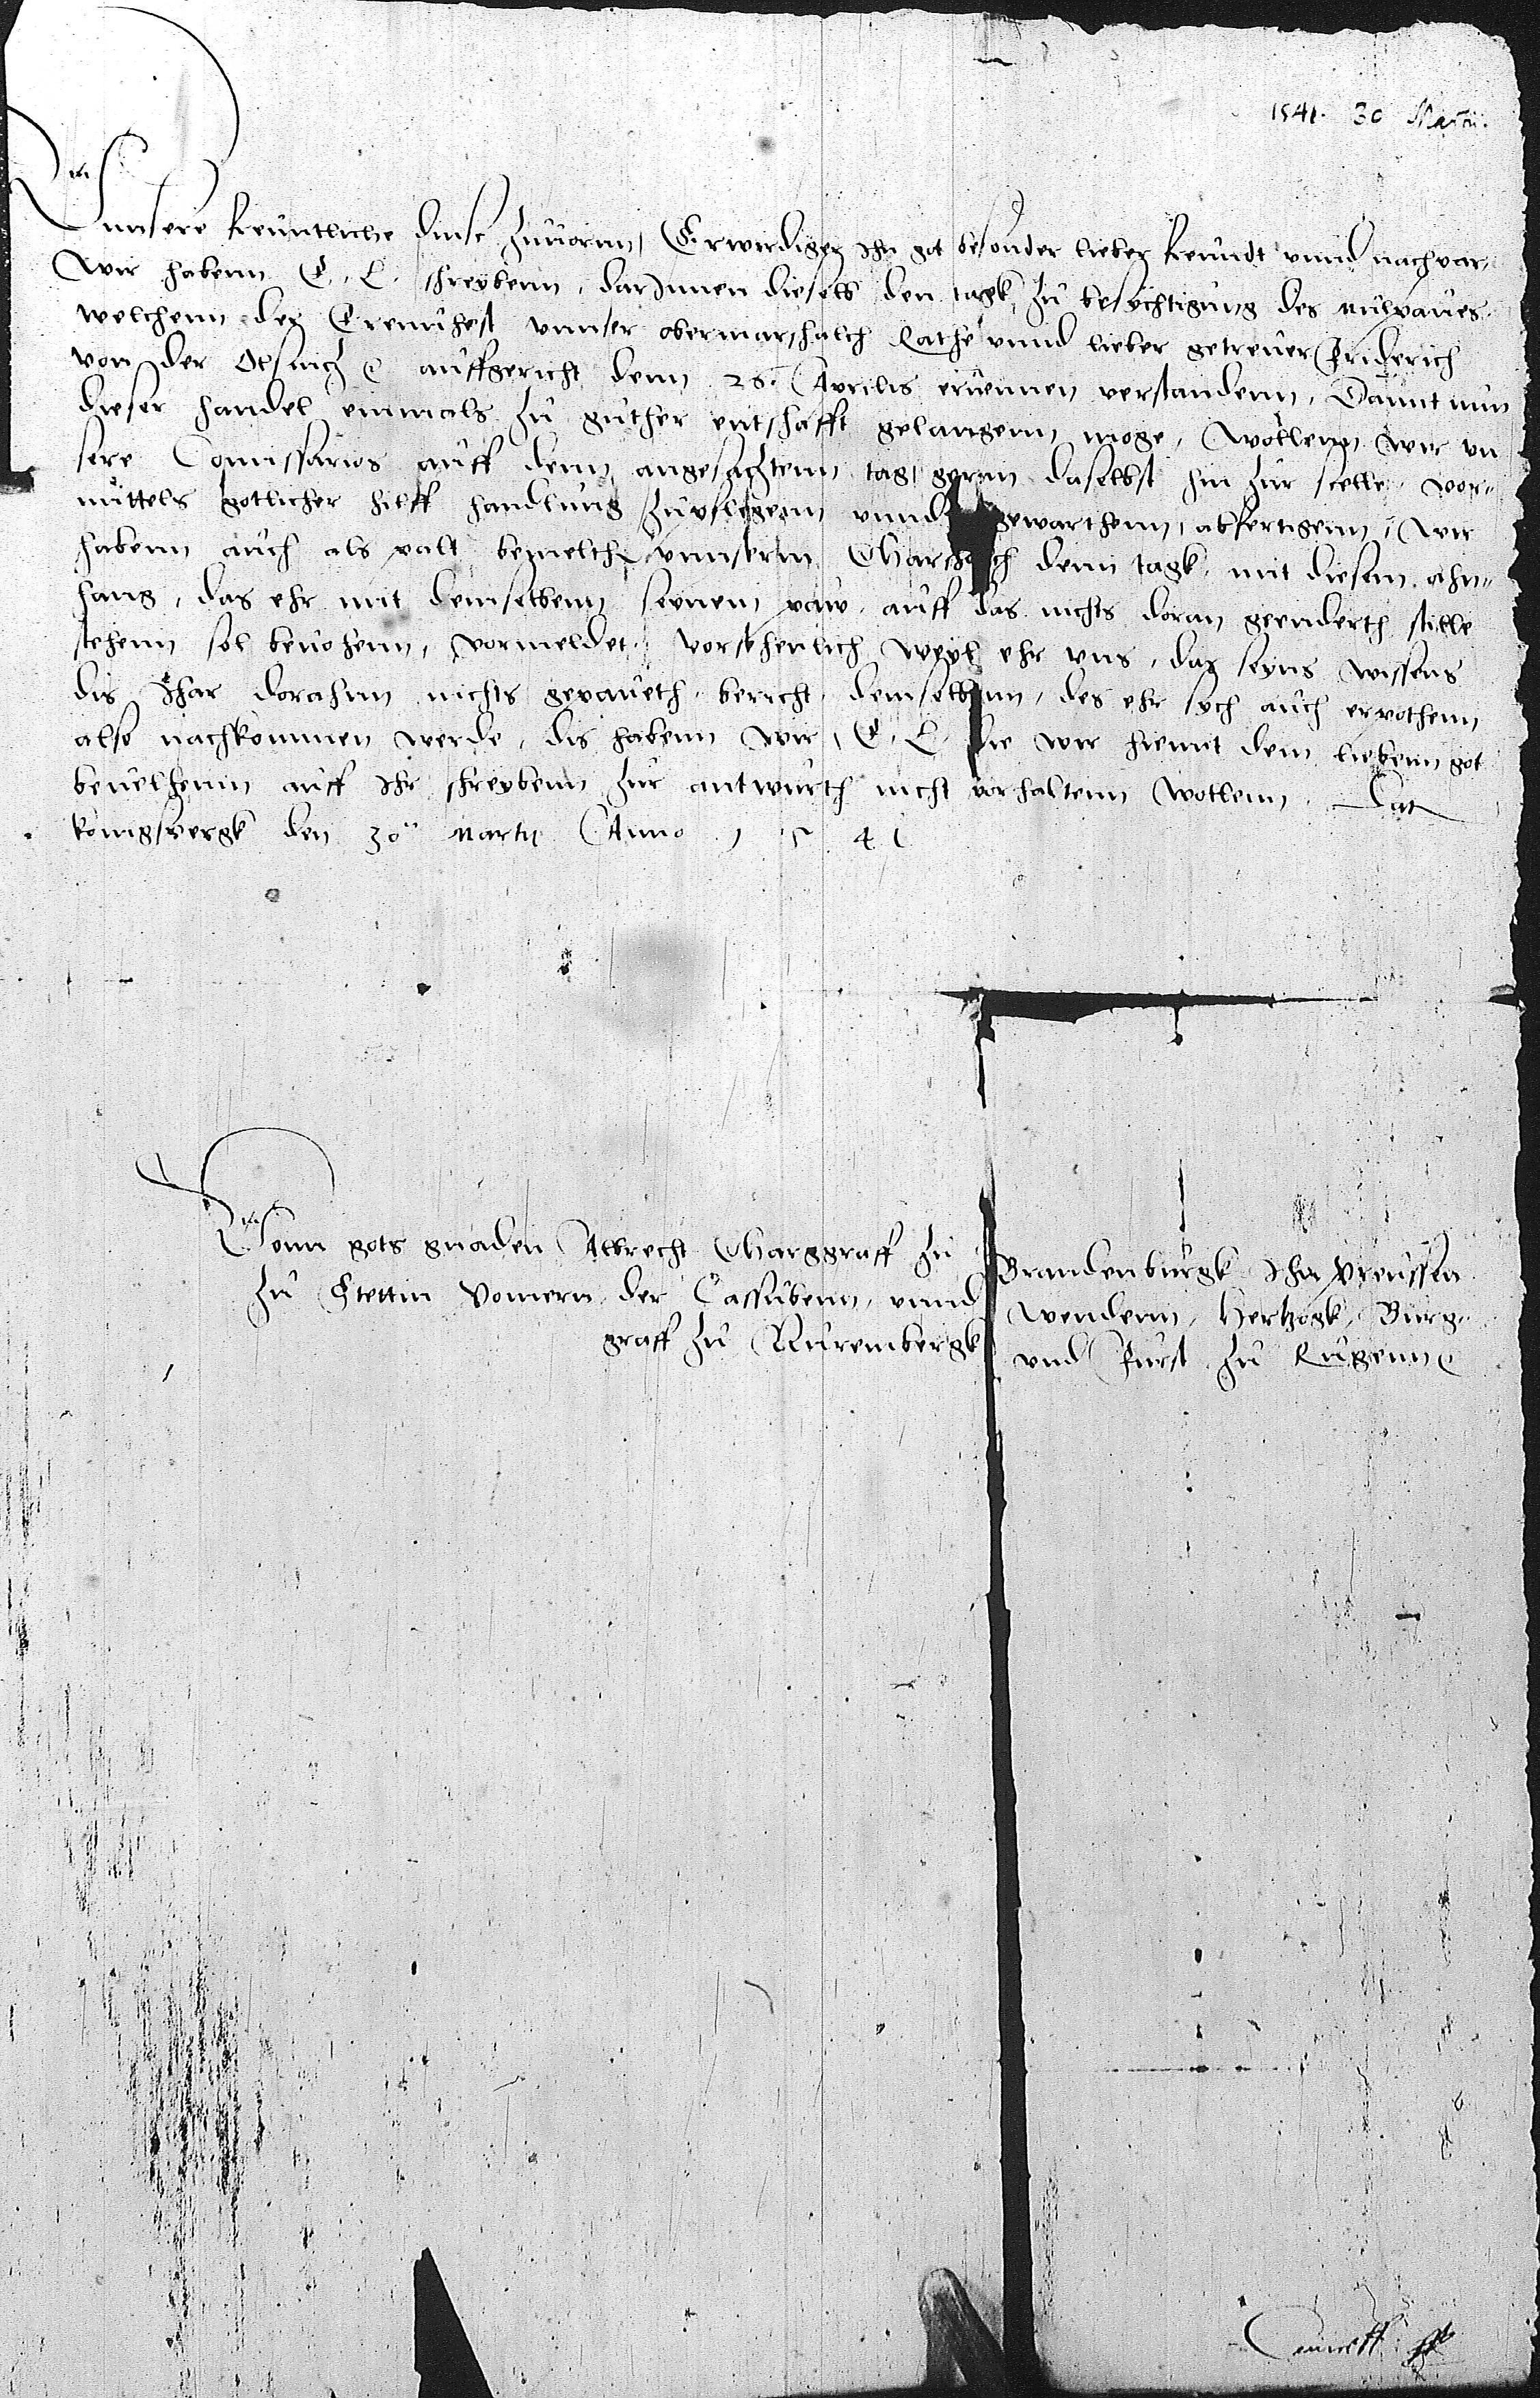 1541. 30 Martii.
Vnnsere freuntliche dinst zuuornn, Erwirdiger Ihn got besonder lieber freundt vnnd nachpar,
Wir habenn E. L. schreybenn, darInnen dieselb den tagk, zu besychtigung des mulpaues.
welchenn der Erennhest vnnser obermarschalch Rathe vnnd lieber getreuer Friderich
von der Olsnitz auffgericht denn 26. Aprilis ernennen verstandenn, Damit nun
dieser handel einmals zu guther entschafft gelangenn moge, Wollenn wir vn
sere Comissarios auff denn angesatztenn tag gernn daselbst hin zur stelle, vor-
mittels gotlicher hilff handlung zupflegenn vnnd gewarthenn, abfertigenn, Wir
habenn auch als palt bemelth vnnserm Marschalch denn tagk, mit diesem ahn-
hang, das ehr mit demselbenn seynem paw, auff das nichts doran geenderth stille
stehenn sol beuohenn, vormeldet, vorsehenlich weyl ehr vns, das seyns wissens
dis Jhar dorahnn nichts gepaueth, bericht, demselbenn, des ehr sych auch erpothenn
also nachkommen werde, dis habenn wir, E. L. die wir hiemit dem liebenn got
beuelhenn auff Ihr schreybenn zur antwurth nicht vorhaltenn wollenn. Dat
konigspergk den 30 Martij Anno 1541
Vonn gots gnaden Albrecht Marggraff zu Brandenburgk Ihn Preussen
zu Stettin Pomern der Cassubenn, vnnd Wendenn, Hertzogk, Burg-
graff zu Nurembergk vnd Furst zu Rugenn